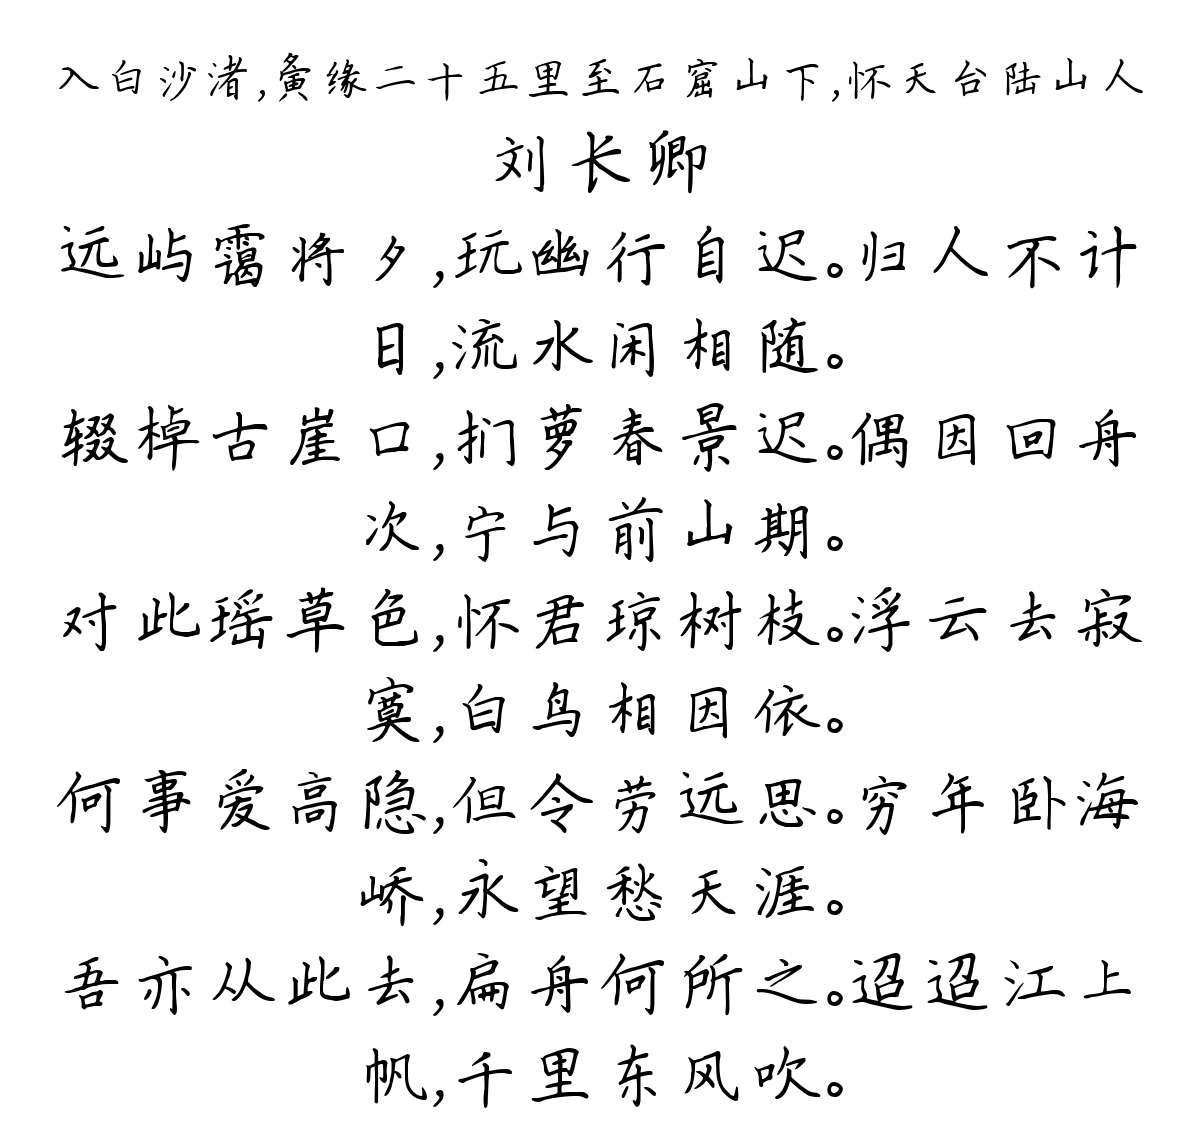 入白沙渚,夤缘二十五里至石窟山下,怀天台陆山人
刘长卿
远屿霭将夕,玩幽行自迟。归人不计
日,流水闲相随。
辍棹古崖口,扪萝春景迟。偶因回舟
次,宁与前山期。
对此瑶草色,怀君琼树枝。浮云去寂
寞,白鸟相因依。
何事爱高隐,但令劳远思。穷年卧海
峤,永望愁天涯。
吾亦从此去,扁舟何所之。迢迢江上
帆,千里东风吹。